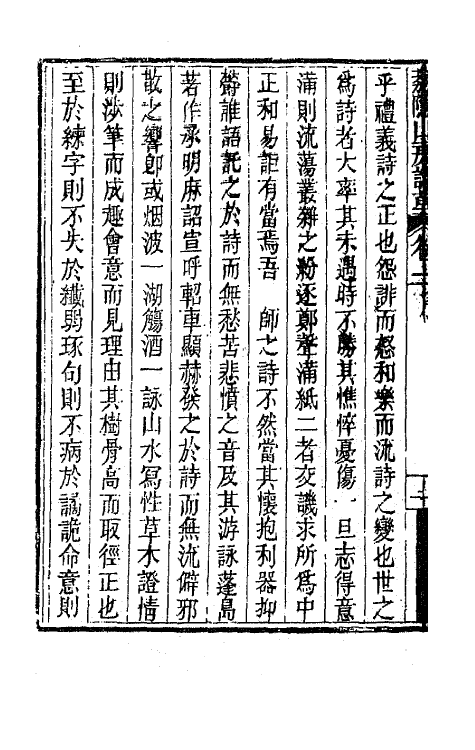 乎禮義詩之正也怨誹而怒和樂而流詩之變也世之
爲詩者大率其未遇時不勝其憔悴憂傷一旦志得意
滿則流蕩叢雜之粉逐鄭聲滿紙二者交譏求所爲中
正和易詎有當焉吾　師之詩不然當其懷抱利器抑
鬱誰語託之於詩而無愁苦悲憤之音及其游詠蓬島
著作承明麻詔宣呼軺車顯赫發之於詩而無流僻邪
散之響卽或烟波一湖觴酒一詠山水寫性草木證情
則涉筆而成趣會意而見理由其樹骨高而取徑正也
至於練字則不失於纖弱琢句則不病於譎詭命意則